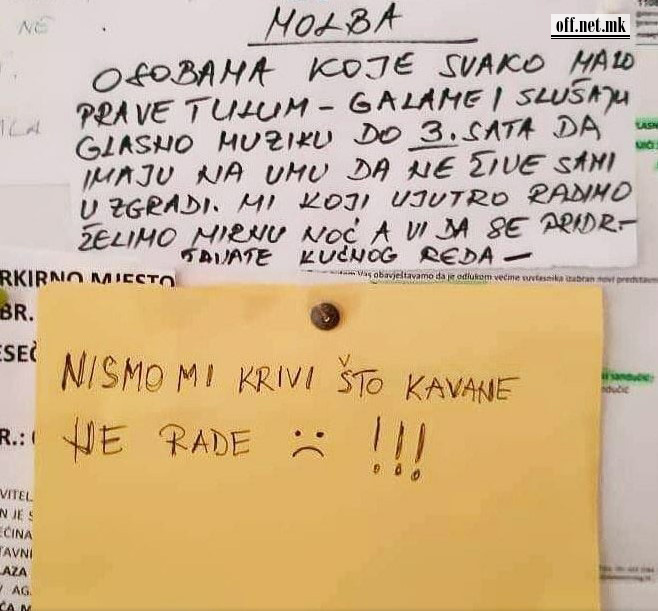 NE
off.net.mk
MOLBA
OSOBAMA KOJE SVAKO MALO
PRAVE TULUM - GALAME I SLUŠAJU
GLASNO MUZIKU DO 3. SATA DA
IMAJU NA UMU DA NE ŽIVE SAMI
U ZGRADI. MI KOJI UJUTRO RADIMO
ŽELIMO MIRNU NOĆ A VI DA SE PRIDR-
ŽAVATE KUĆNOG REDA -
RKIRNO MJESTO
Vas obavještavamo da je odlukom većine suvlasnika izabran novi predstavn
BR.
SEČ
NISMO MI KRIVI ŠTO KAVANE
NE RADE :( !!!
R.:
VITEL
N JE S
EĆINA
TAVNI
LAZA
AG.